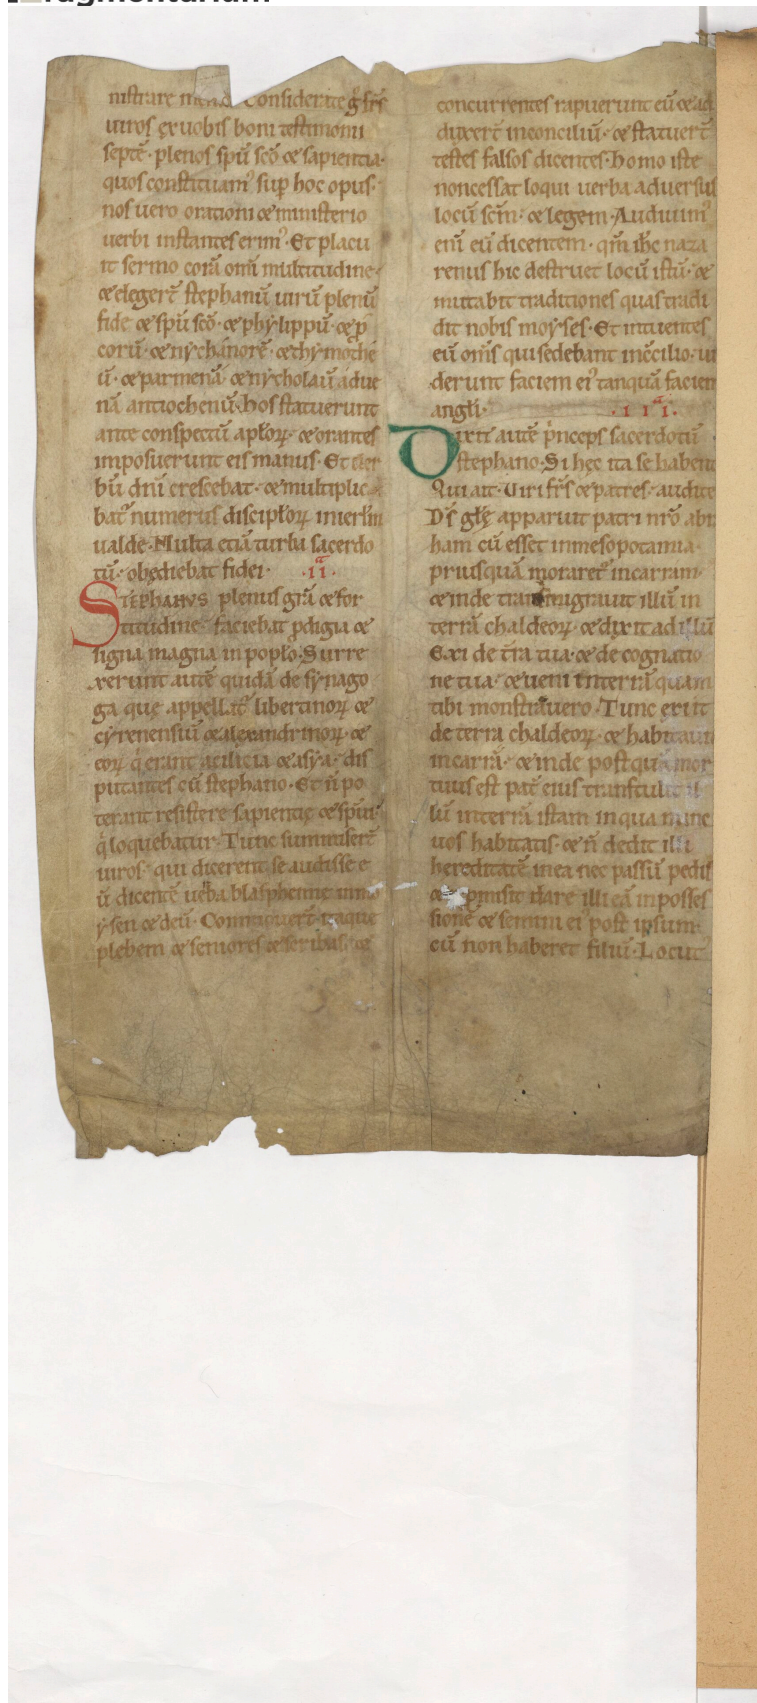 nistrare mensis. Considerate g̊ frs̄
uiros ex uobis boni testimonii
septē· plenos spū scō & sapientia·
quos constituam᾽ sup hoc opus·
nos uero orationi & ministerio
uerbi instantes erim᾽· Et placu
it sermo corā omī multitudine·
& elegerт̄ stephanū uirū plenū
fide & spū scō· & phylippū· & p̄
corū· & nychanorē· & thymothe
ū· & parmenā· & nycholaū adue
nā antiochenū· Hos statuerunt
ante conspectū aploꝝ· & orantes
imposuerunt eis manus· Et uer
bū dn̄i crescebat· & multiplica
bat᾽ numerus discipl̄oꝝ in ierl̄m
ualde· Multa etiā turba sacerdo
tū· obędiebat fidei· ·II·ᵃ
STEPHANVS plenus grā & for
titudine faciebat ꝓdigia &
signa magna in popl̄o· Surre
xerunt autē quidā de synago
ga quę appellat᾽ libertinoꝝ &
cyrenensiū & alexandrinoꝝ· &
eoꝝ q̇ erant a cilicia & asya· dis
putantes cū stephano· Et n̄ po
terant resistere sapientię & spūi·
q̇ loquebatur· Tunc summiserт̄
uiros· qui dicerent se audisse e
ū dicentē uerba blasphemie in mo
ysen & deū· Commouerт̄ itaque
plebem & seniores & scribas· &
concurrentes rapuerunt eū & ad
duxerт̄ in conciliū· & statuerт̄
testes falsos dicentes· Homo iste
non cessat loqui uerba aduersus
locū scm̄· & legem· Audiuim᾽
enī eū dicentem· qm̄ ihc naza
renus hic destruet locū istū· &
mutabit traditiones quas tradi
dit nobis moyses· Et intuentes
eū om̄s qui sedebant in c̄cilio· ui
derunt faciem ei᾽ tanquā faciem
angl̄i· ·III·ᵃ
Dixit autē p̄nceps sacerdotū
stephano· Si hęc ita se habent
Qui ait· Viri frs̄ & patres· audite
Ds̄ glę apparuit patri nr̄o abra
ham cū esset in mesopotamia·
priusquā moraret᾽ in carram·
& inde transmigrauit illū in
terrā chaldeoꝝ· & dixit ad illū
Exi de tr̄a tua· & de cognatio
ne tua· & ueni in terrā quam
tibi monstrauero· Tunc exiit
de terra chaldeoꝝ· & habitauit
in carrā· & inde postquā mor
tuus est pat̄ eius transtulit il
lū in terrā istam in qua nunc
uos habitatis· & n̄ dedit illi
hereditatē in ea nec passū pedis
& repromisit dare illi eā in posses
sionē & semini ei᾽ post ipsum·
cū non haberet filiū· Locut᾽